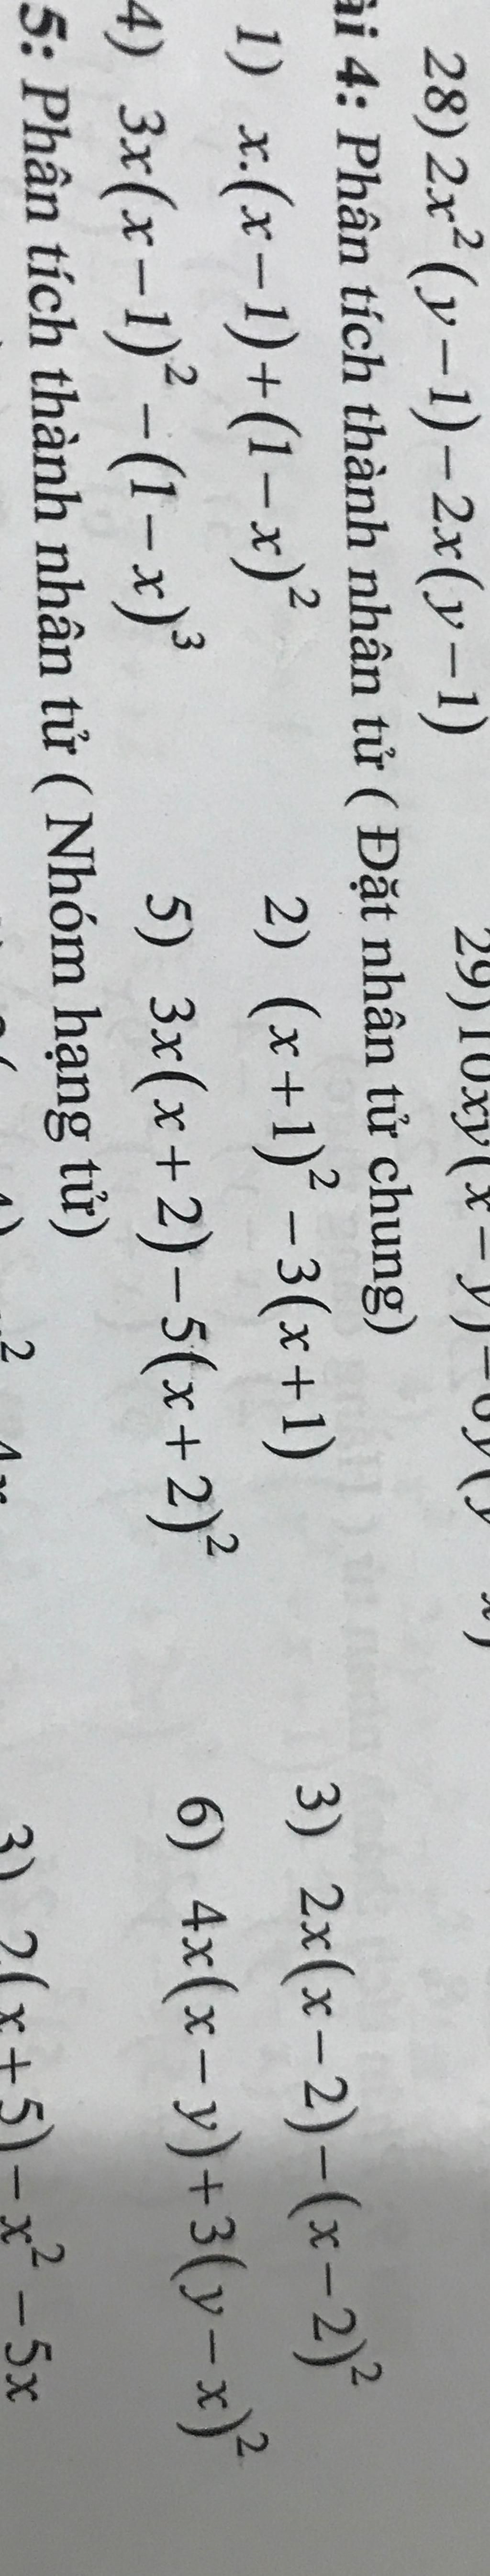 28) 2x²(y−1)−2x(y−1)
ài 4: Phân tích thành nhân tử ( Đặt nhân tử chung)
1) x.(x−1)+(1−x)² 2) (x+1)²−3(x+1) 3) 2x(x−2)−(x−2)²
4) 3x(x−1)²−(1−x)³ 5) 3x(x+2)−5(x+2)² 6) 4x(x−y)+3(y−x)²
5: Phân tích thành nhân tử ( Nhóm hạng tử)
3) 2(x+5)−x²−5x